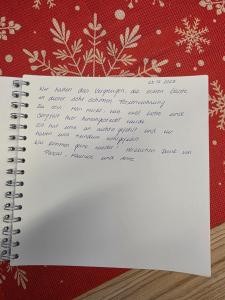 27.12.2023
Wir hatten das Vergnügen die ersten Gäste
in dieser sehr schönen Ferienwohnung
zu sein. Man merkt, wie viel Liebe und
Sorgfalt hier hineingesteckt wurde.
Es hat uns an nichts gefehlt und wir
haben uns rundum wohlgefühlt.
Wir kommen gerne wieder! Herzlichen Dank von
Maurice und